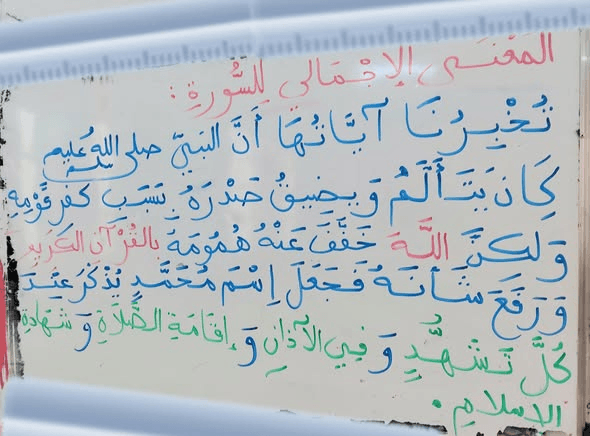 المعنى الإجمالي للسُّورةِ :
تُخْبِرُنَا آيَاتُهَا أَنَّ النبيّ صلى الله عليه
كَانَ يَتَأَلَّمُ وَيضِيقُ صَدْرَهُ بِسَبَبِ كفر قَوْمِهِ
وَلكنَّ اللَّهَ خَفَّفَ عَنْهُ هُمُومَهُ بالقُرْآنِ الكَرِيمِ
وَرَفَعَ شَأنَهُ فَجَعَلَ اِسْمَ مُحَمَّدٍ يُذْكَرُ عِنْدَ
كُلَّ تَشَهُّدٍ وَفِي الآذانِ وَإقَامَةِ الصَّلَاةِ وَشَهَادَة
الاسلامِ .